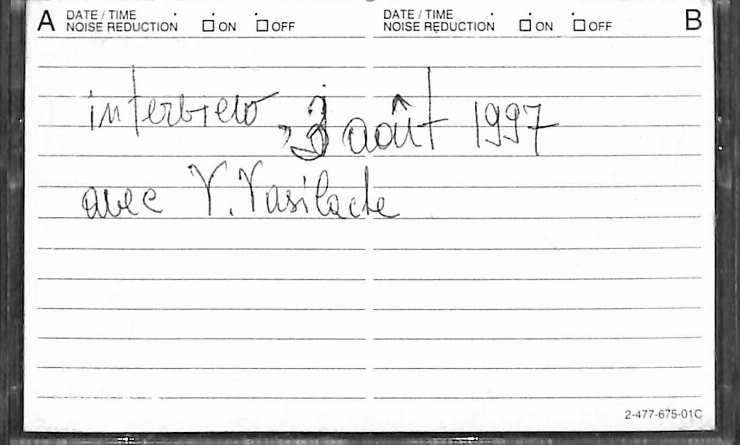 A DATE / TIME NOISE REDUCTION ☐ ON ☐ OFF
DATE / TIME NOISE REDUCTION ☐ ON ☐ OFF B
interview, 3 août 1997
avec V. Vasilache
2-477-675-01C